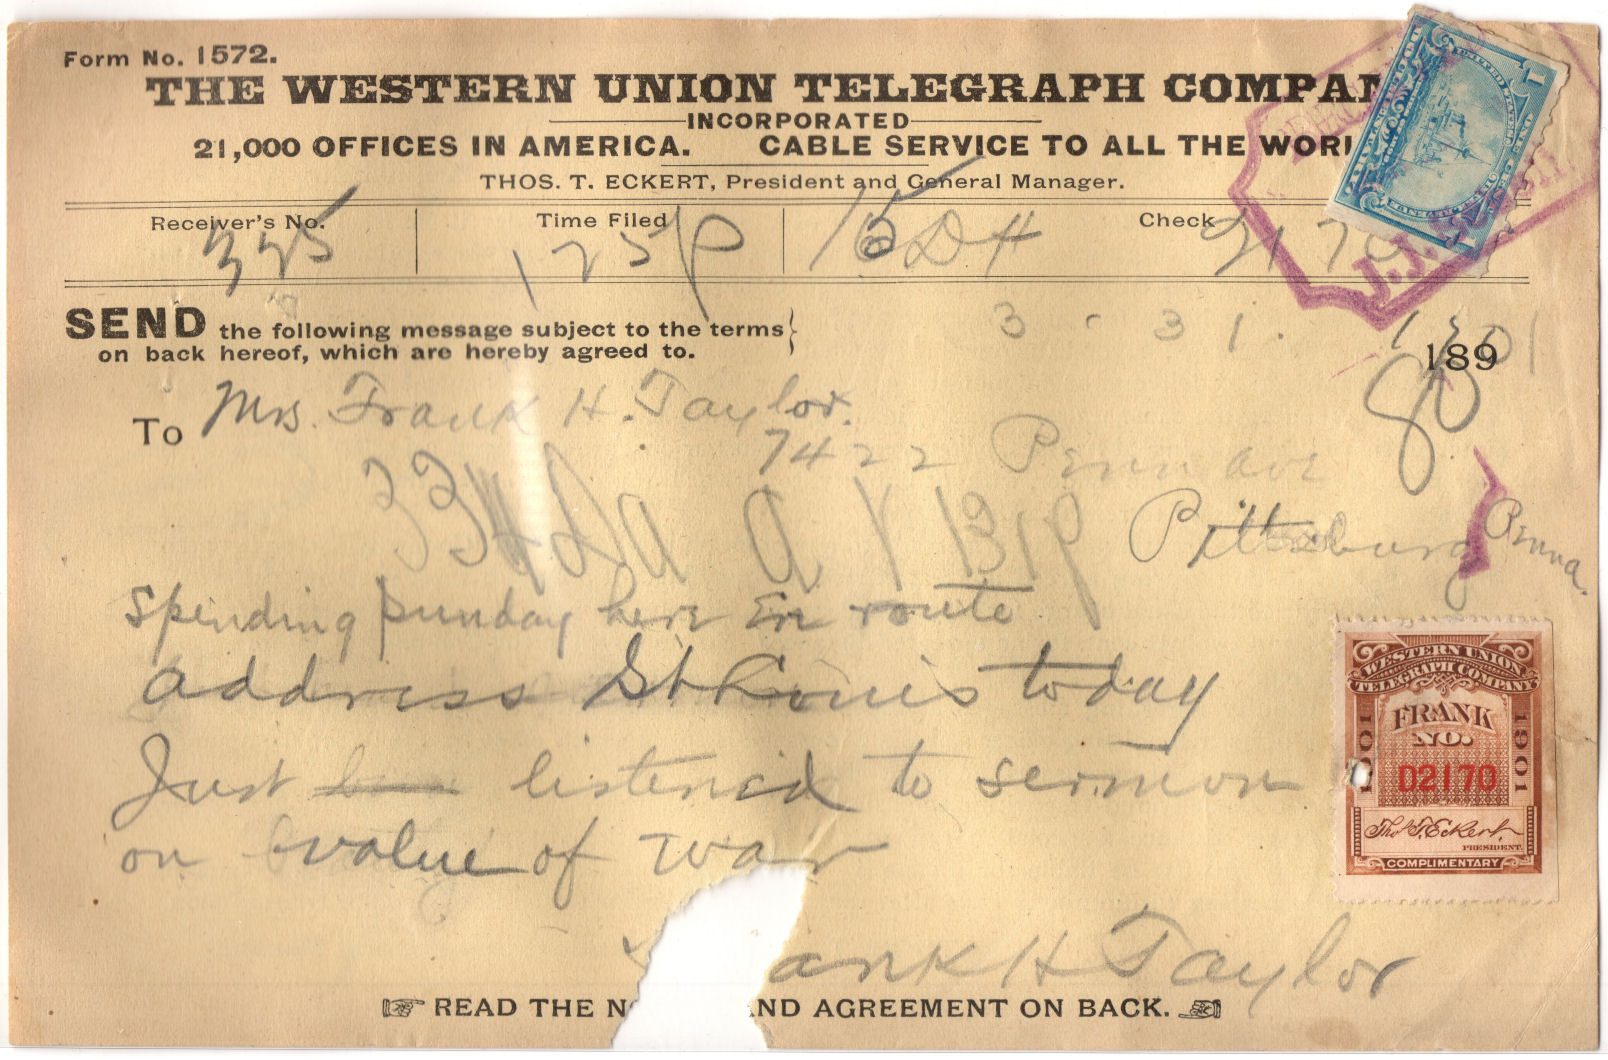 Form No. 1572.
THE WESTERN UNION TELEGRAPH COMPAN
INCORPORATED
21,000 OFFICES IN AMERICA. CABLE SERVICE TO ALL THE WORL
THOS. T. ECKERT, President and General Manager.
Receiver's No. Time Filed Check
335 125P 15 DH
SEND the following message subject to the terms
on back hereof, which are hereby agreed to.
3 31. 1901
189
80
To Mrs. Frank H. Taylor.
7422 Penn ave
Pittsburg Penna.
Spending Sunday here En route
address St Louis today
Just listened to sermon
on value of war
ank H Taylor
READ THE N ND AGREEMENT ON BACK.
J. J. S
WESTERN UNION
TELEGRAPH COMPANY
FRANK
NO.
1901 1901
D2170
Thos. T. Eckert
PRESIDENT.
COMPLIMENTARY